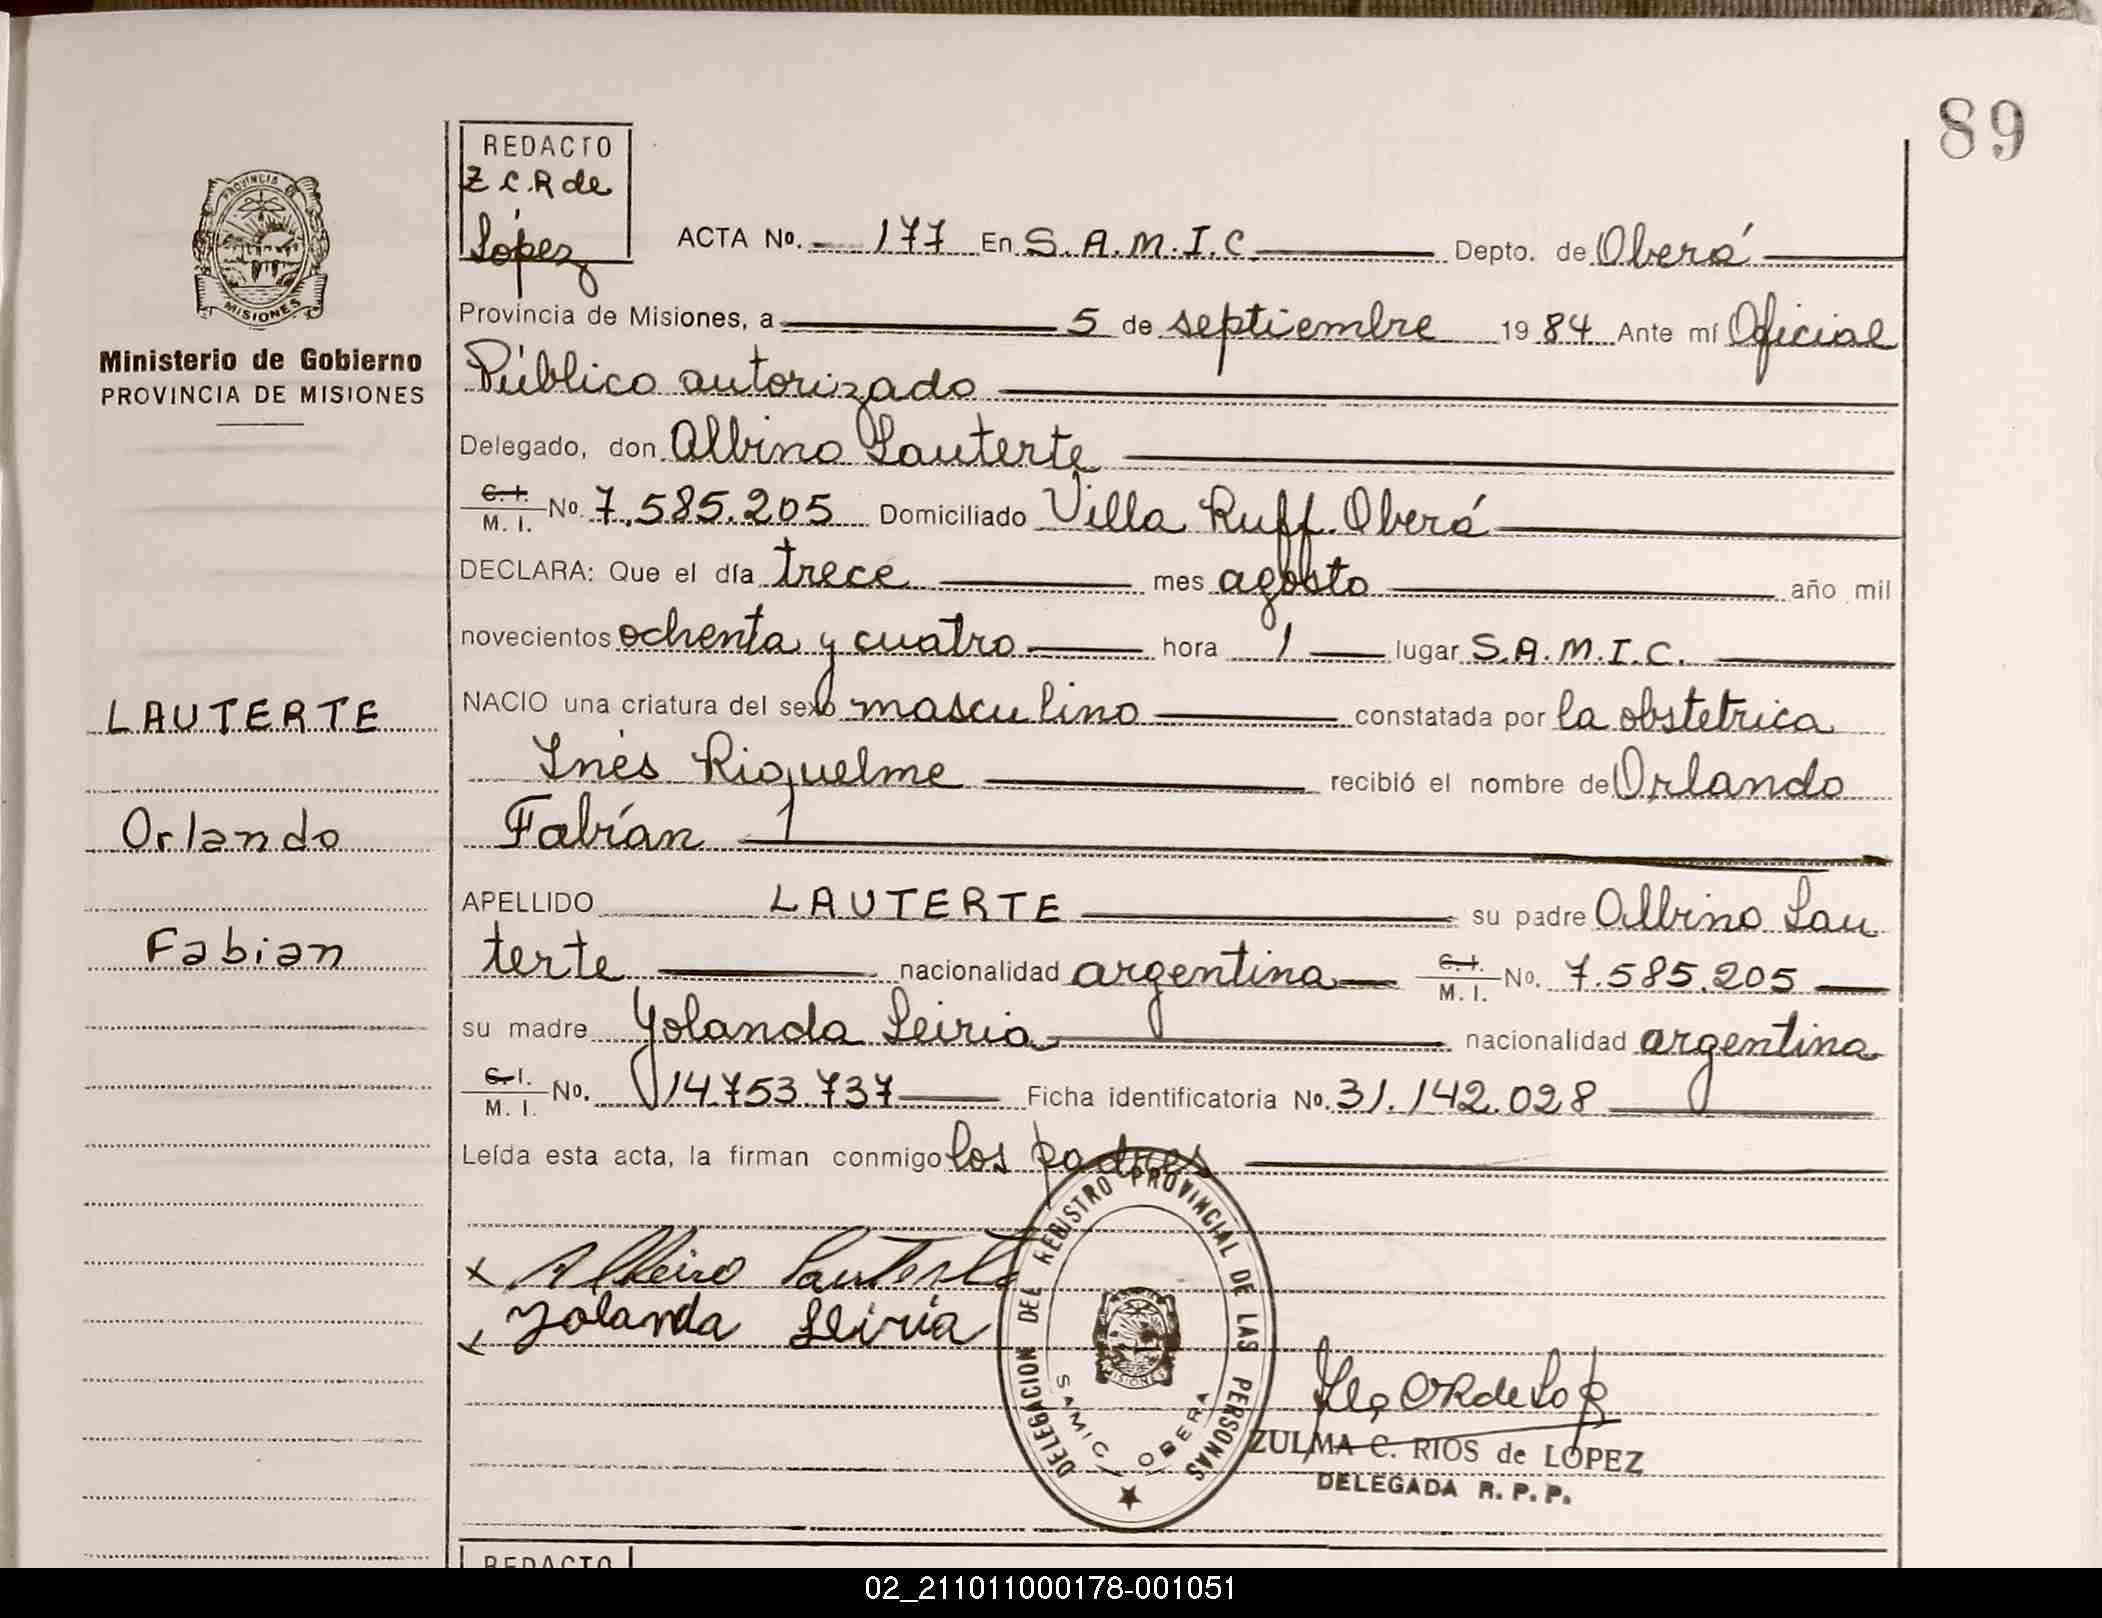 89
REDACTO
Z C.R de
López
ACTA No. 177 En S.A.M.I.C. Depto. de Oberá
PROVINCIA DE
MISIONES
Provincia de Misiones, a 5 de septiembre 1984 Ante mí Oficial
Ministerio de Gobierno
PROVINCIA DE MISIONES
Público autorizado
Delegado, don Albino Lauterte
C.I. M.I. No 7.585.205 Domiciliado Villa Ruff. Oberá
DECLARA: Que el día trece mes agosto año mil
novecientos ochenta y cuatro hora 1 lugar S.A.M.I.C.
LAUTERTE
NACIO una criatura del sexo masculino constatada por la obstetrica
Inés Riquelme recibió el nombre de Orlando
Orlando
Fabián
APELLIDO LAUTERTE su padre Albino Lau
Fabian
terte nacionalidad argentina C.I. M.I. No. 7.585.205
su madre Yolanda Leiria nacionalidad argentina
C.I. M.I. No. 14.753.737 Ficha identificatoria No. 31.142.028
Leída esta acta, la firman conmigo los padres
x Albino Lauterte
x Yolanda Leiria
DELEGACION DEL REGISTRO PROVINCIAL DE LAS PERSONAS
MISIONES
SAMIC OBERA
ZULMA C. RIOS de LOPEZ
DELEGADA R. P. P.
REDACTO
02_211011000178-001051